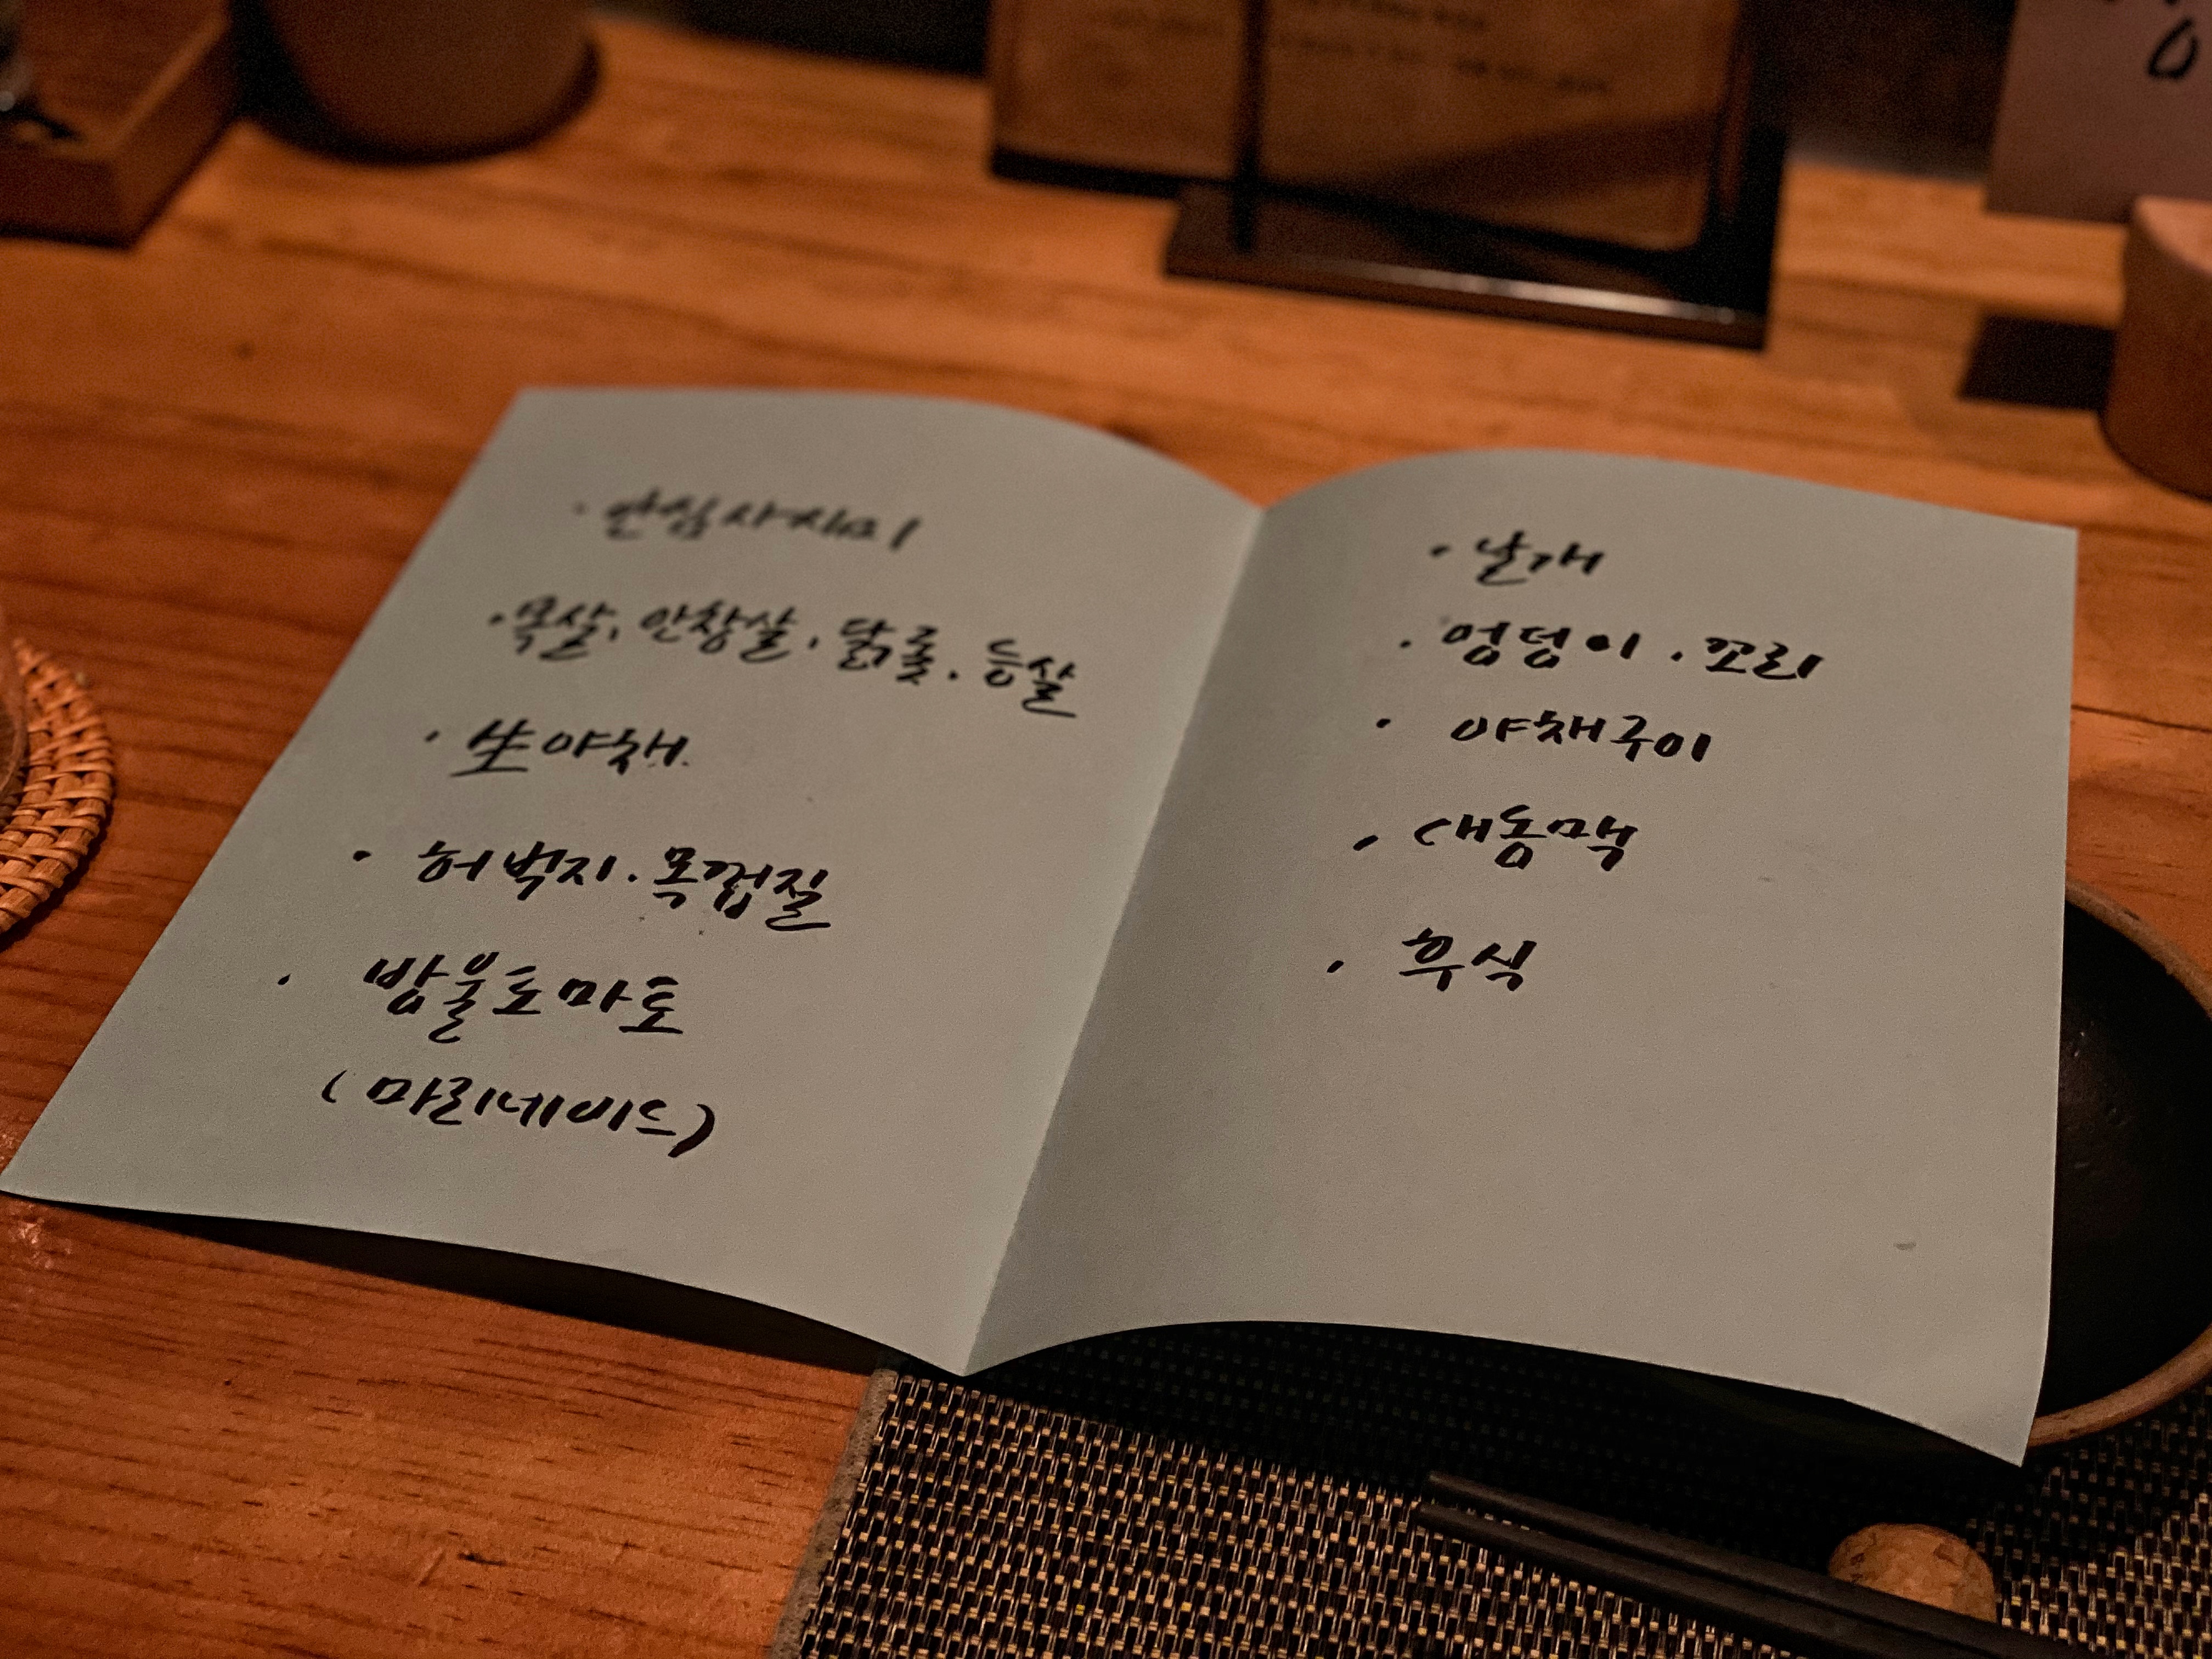 · 안심사시미
· 목살, 안창살, 닭롷. 등살
· 生야채.
· 허벅지 · 목껍질
· 방울토마토
(마리네이드)
· 날개
· 엉덩이 · 꼬리
· 야채구이
· 대동맥
· 후식